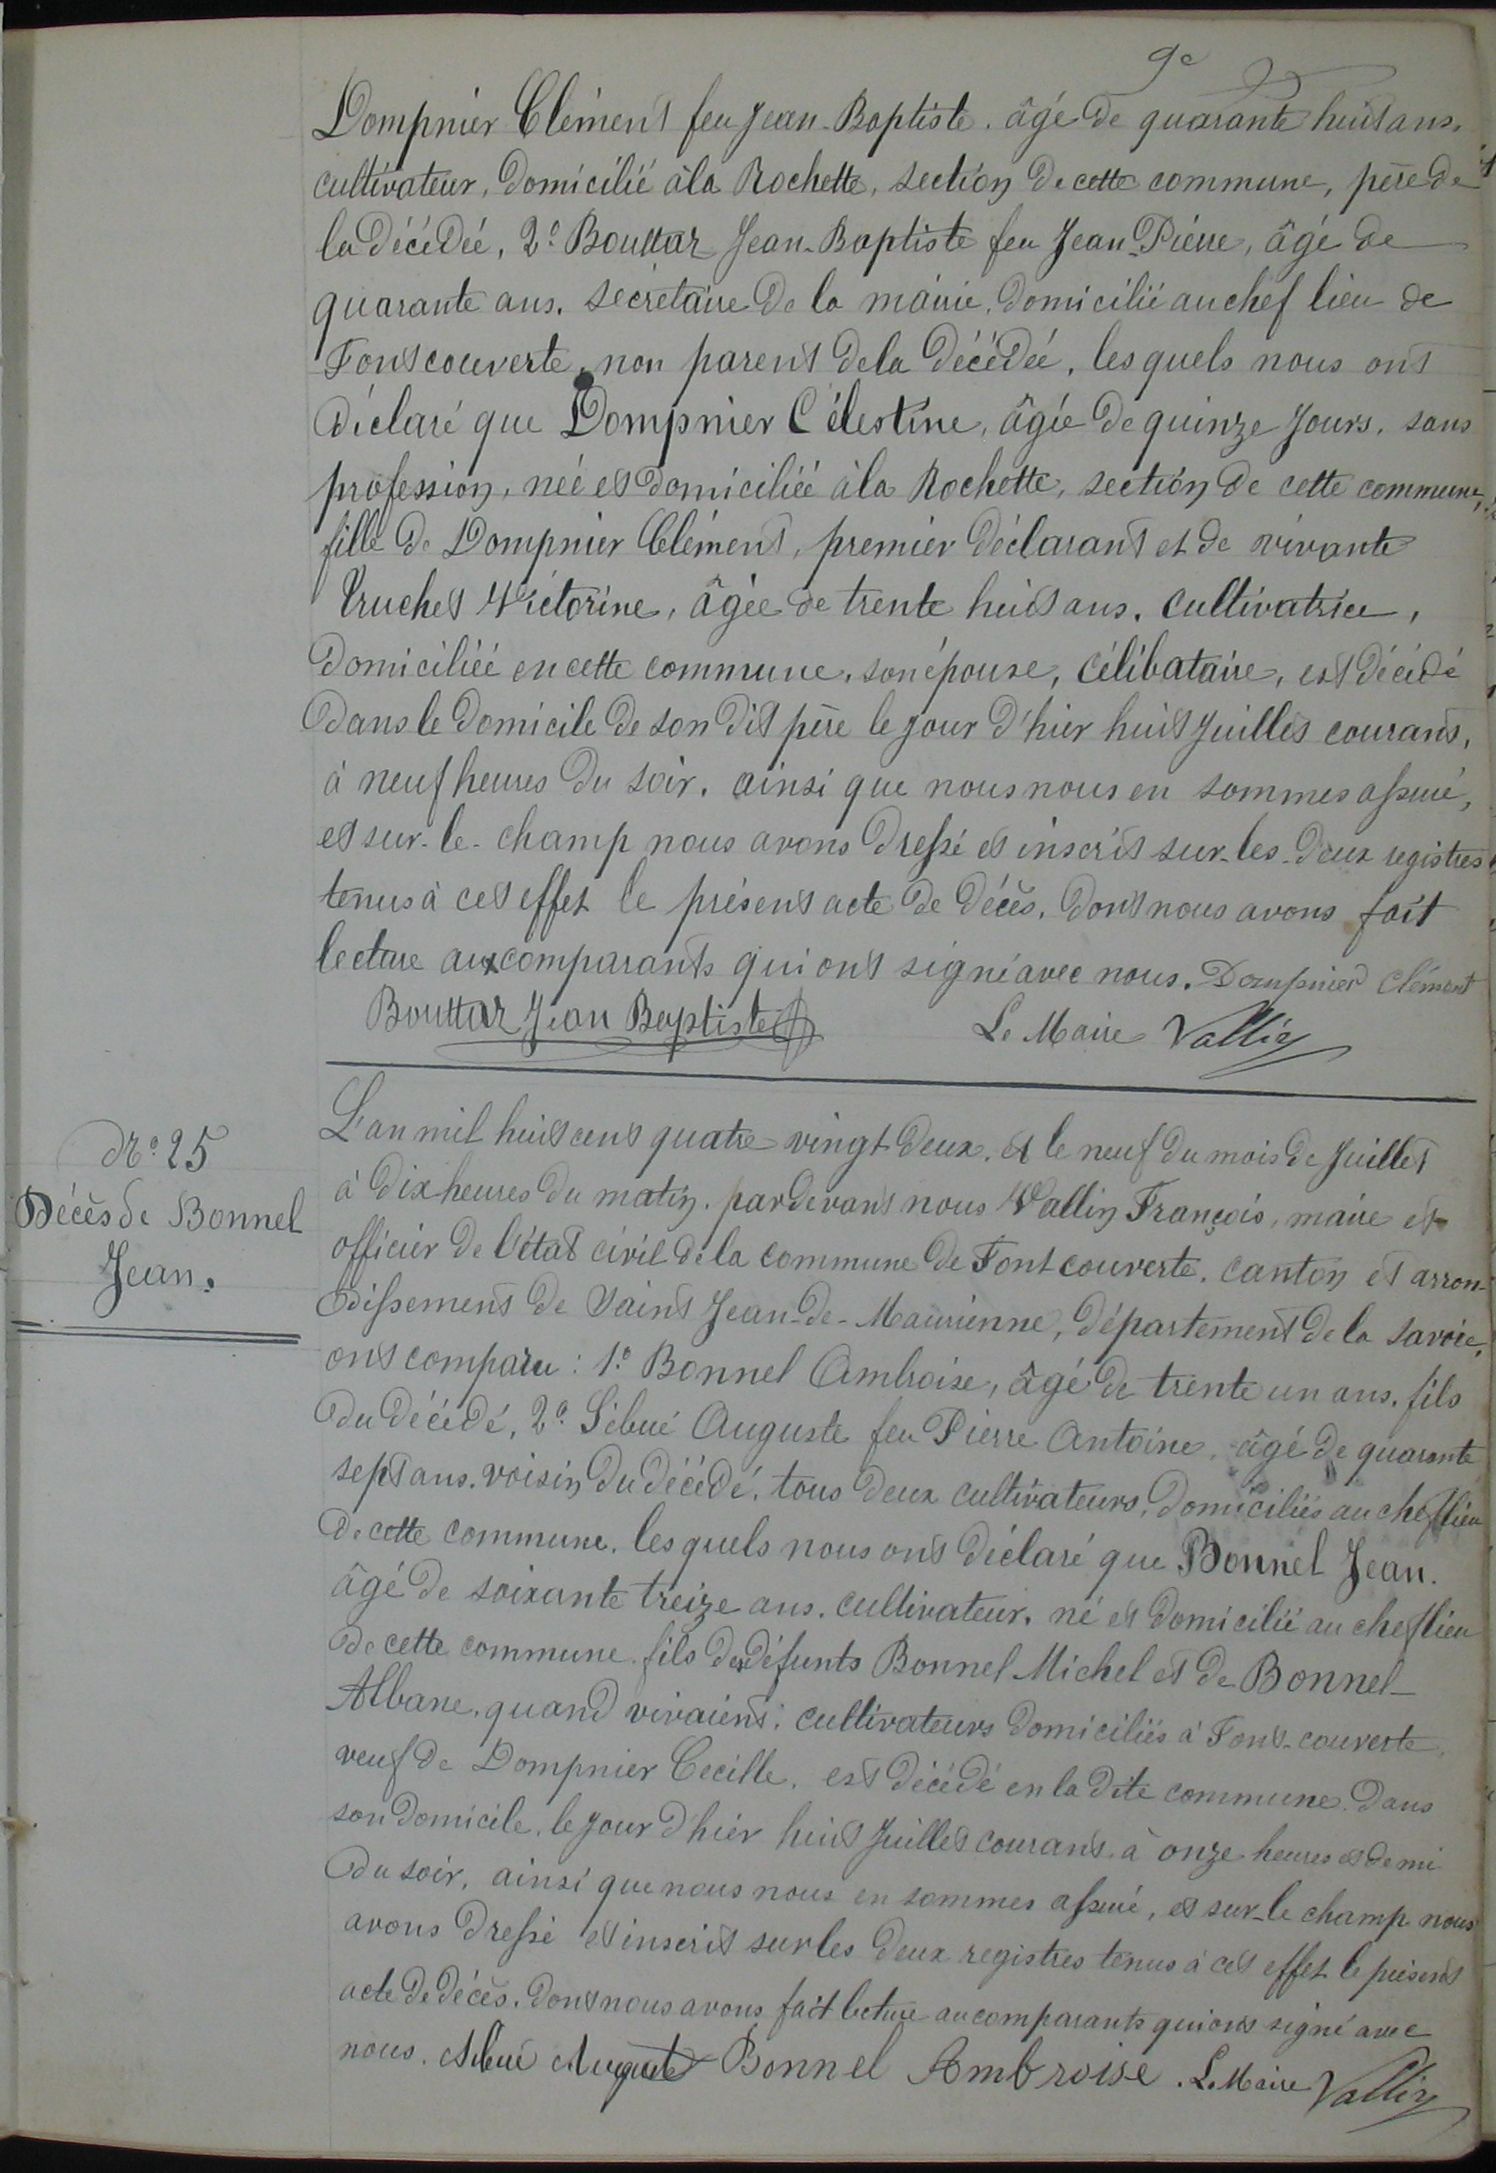 9e
Dompnier Clément feu Jean-Baptiste, âgé de quarante huit ans,
cultivateur, domicilié à la Rochette, section de cette commune, père de
la décédée, 2° Bouttaz Jean-Baptiste feu Jean-Pierre, âgé de
quarante ans, secrétaire de la mairie, domicilié au chef lieu de
Fontcouverte, non parent de la décédée, lesquels nous ont
déclaré que Dompnier Célestine, âgée de quinze jours, sans
profession, née et domiciliée à la Rochette, section de cette commune,
fille de Dompnier Clément, premier déclarant et de vivante
Truchet Victorine, âgée de trente huit ans, cultivatrice,
domiciliée en cette commune, son épouse, célibataire, est décédé
dans le domicile de son dit père le jour d'hier huit Juillet courant,
à neuf heures du soir, ainsi que nous nous en sommes assuré,
et sur-le-champ nous avons dressé et inscrit sur-les-deux registres
tenus à cet effet le présent acte de décès, dont nous avons fait
lecture aux comparants qui ont signé avec nous. Dompnier Clément
Bouttaz Jean Baptiste Le Maire Vallin
N° 25
Décès de Bonnel
Jean.
L'an mil huit cent quatre vingt deux, et le neuf du mois de Juillet
à dix heures du matin, par devant nous Vallin François, maire et
officier de l'état civil de la commune de Fontcouverte, canton et arron-
dissement de Saint Jean-de-Maurienne, département de la Savoie,
ont comparu : 1° Bonnel Ambroise, âgé de trente un ans, fils
du décédé, 2° Sibué Auguste feu Pierre Antoine, âgé de quarante
sept ans, voisin du décédé, tous deux cultivateurs, domiciliés au chef lieu
de cette commune, lesquels nous ont déclaré que Bonnel Jean,
âgé de soixante treize ans, cultivateur, né et domicilié au chef lieu
de cette commune, fils des défunts Bonnel Michel et de Bonnel
Albane, quand vivaient, cultivateurs domiciliés à Font-couverte,
veuf de Dompnier Cecille, est décédé en la dite commune dans
son domicile, le jour d'hier huit Juillet courant, à onze heures et demi
du soir, ainsi que nous nous en sommes assuré, et sur-le champ nous
avons dressé et inscrit sur les deux registres tenus à cet effet le présent
acte de décès, dont nous avons fait lecture au comparants qui ont signé avec
nous. Sibué Auguste Bonnel Ambroise. Le Maire Vallin